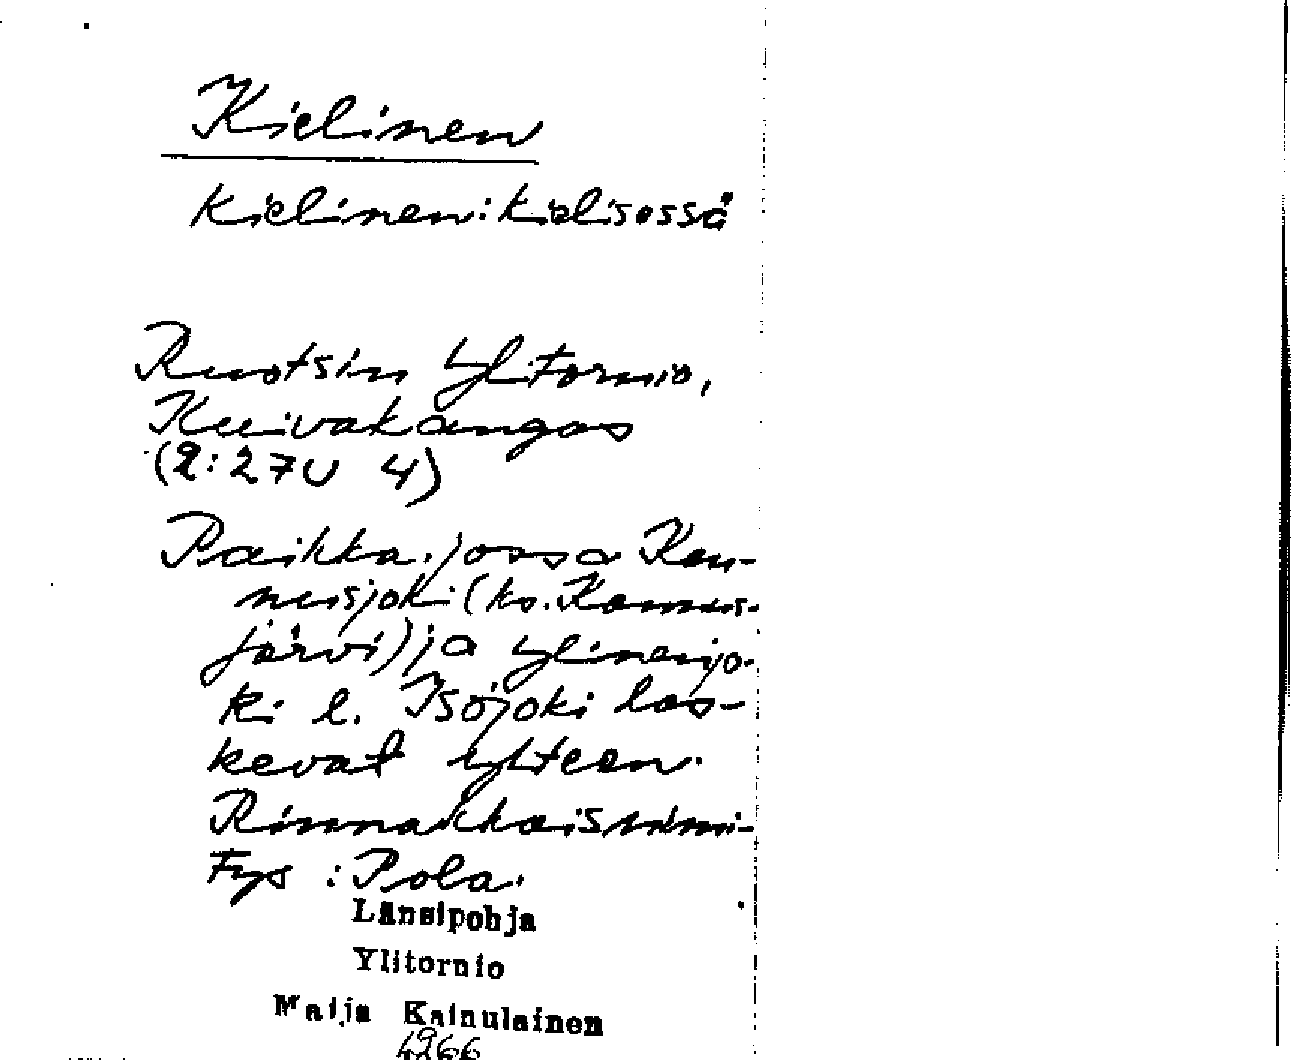 Kielinen
Kielinen: kielisessä
Ruotsin Ylitornio,
Kuivakangas
(2:27U 4)
Paikka, jossa Kan-
nusjoki (ks. Kannus-
järvi) ja Ylinenjo-
ki l. Isojoki las-
kevat yhteen.
Rinnakkaisnimi-
tys : Pola.
Länsipohja
Ylitornio
Maija Kainulainen
1966